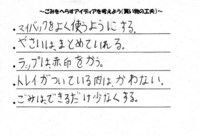 ～ごみをへらすアイディアを考えよう(買い物の工夫)～
・マイバックをよく使うようにする。
・やさいは、まとめていれる。
・ラップは、赤印をかう。
・トレイがついている肉は、かわない。
・ごみは、できるだけ少なくする。